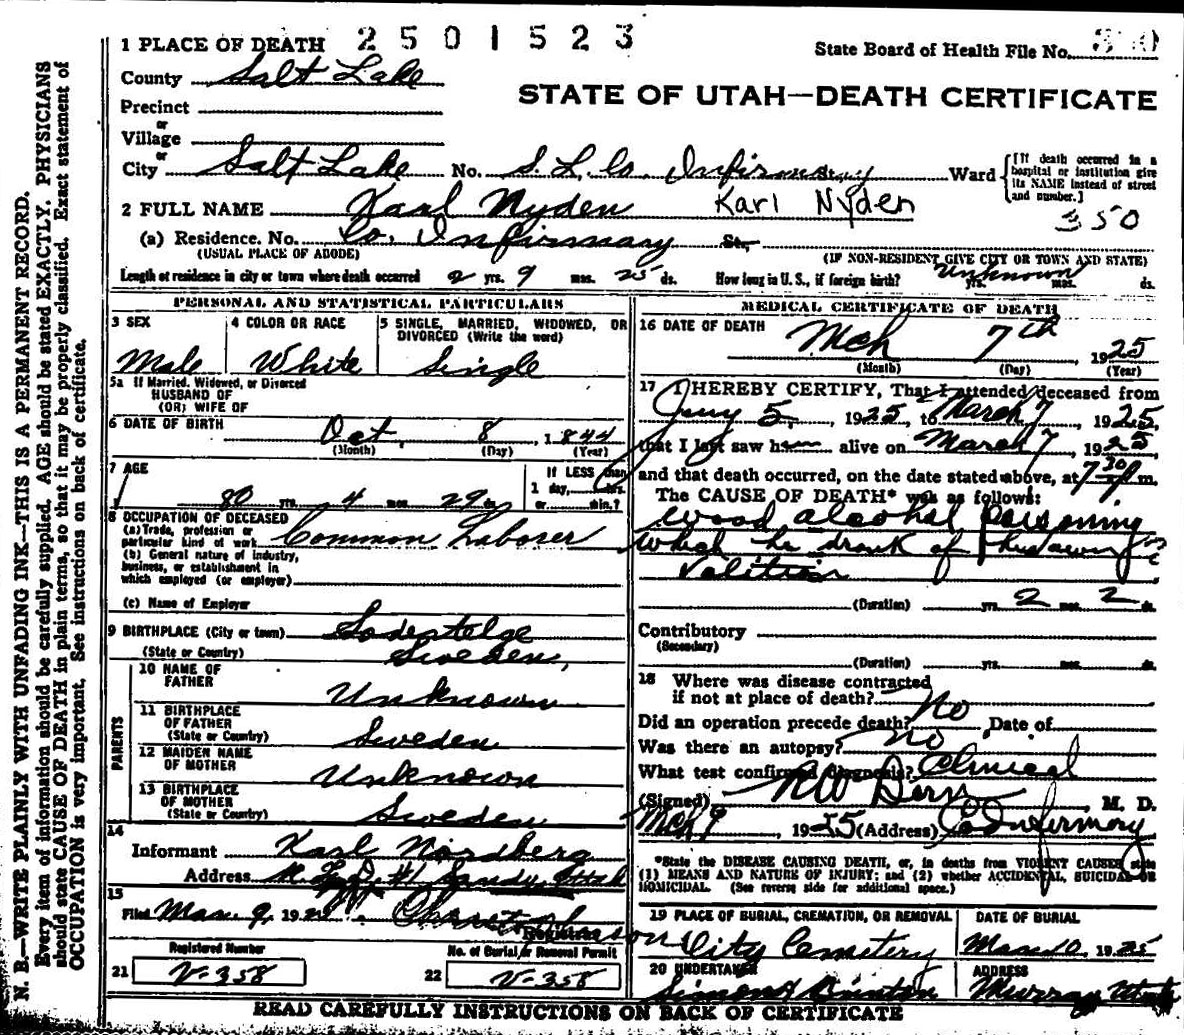 1 PLACE OF DEATH 2501523
State Board of Health File No. 350
County Salt Lake
STATE OF UTAH—DEATH CERTIFICATE
Precinct
or
Village
or
City Salt Lake No. S. L. Co. Infirmary Ward [If death occurred in a hospital or institution give its NAME instead of street and number.]
2 FULL NAME Karl Nyden Karl Nyden
350
(a) Residence. No. Co. Infirmary St,
(USUAL PLACE OF ABODE) (IF NON-RESIDENT GIVE CITY OR TOWN AND STATE)
Length of residence in city or town where death occurred 2 yrs. 9 mos. 25 ds. How long in U.S., if foreign birth? Unknown yrs. mos. ds.
PERSONAL AND STATISTICAL PARTICULARS
3 SEX
Male
4 COLOR OR RACE
White
5 SINGLE, MARRIED, WIDOWED, OR
DIVORCED (Write the word)
Single
5a If Married, Widowed, or Divorced
HUSBAND OF
(OR) WIFE OF
6 DATE OF BIRTH Oct, 8, 1844
(Month) (Day) (Year)
7 AGE
80 yrs. 4 mos. 29 ds.
If LESS than
1 day, hrs.
or min.?
8 OCCUPATION OF DECEASED
(a) Trade, profession or
particular kind of work Common Laborer
(b) General nature of industry,
business, or establishment in
which employed (or employer)
(c) Name of Employer
9 BIRTHPLACE (City or town) Sodertelge
(State or Country) Sweden,
PARENTS
10 NAME OF
FATHER Unknown
11 BIRTHPLACE
OF FATHER
(State or Country) Sweden
12 MAIDEN NAME
OF MOTHER Unknown
13 BIRTHPLACE
OF MOTHER
(State or Country) Sweden
14
Informant Karl Nordberg
Address #1 Sandy, Utah
15
Filed Mar. 9, 192
Registrar
Registered Number
21 V-358
No. of Burial or Removal Permit
22 V-358
MEDICAL CERTIFICATE OF DEATH
16 DATE OF DEATH
Mch 7th, 1925
(Month) (Day) (Year)
17 I HEREBY CERTIFY, That I attended deceased from
Jany 5, 1925, to March 7, 1925,
that I last saw him alive on March 7, 1925
and that death occurred, on the date stated above, at 7 30 p m.
The CAUSE OF DEATH* was as follows:
wood alcohol poisoning
which he drank of his own
Volition
(Duration) yrs. 2 mos. 2 ds.
Contributory
(Secondary)
(Duration) yrs. mos. ds.
18 Where was disease contracted
if not at place of death?
Did an operation precede death? No Date of
Was there an autopsy? No
What test confirmed diagnosis? Clinical
(Signed) M. D.
Mch 9, 1925 (Address) Co Infirmary
*State the DISEASE CAUSING DEATH, or, in deaths from VIOLENT CAUSES state
(1) MEANS AND NATURE OF INJURY; and (2) whether ACCIDENTAL, SUICIDAL OR
HOMICIDAL. (See reverse side for additional space.)
19 PLACE OF BURIAL, CREMATION, OR REMOVAL
City Cemetery
DATE OF BURIAL
Mar 10, 1925
20 UNDERTAKER
ADDRESS
Murray Utah
READ CAREFULLY INSTRUCTIONS ON BACK OF CERTIFICATE
N. B.—WRITE PLAINLY WITH UNFADING INK—THIS IS A PERMANENT RECORD.
Every item of information should be carefully supplied. AGE should be stated EXACTLY. PHYSICIANS
should state CAUSE OF DEATH in plain terms, so that it may be properly classified. Exact statement of
OCCUPATION is very important. See instructions on back of certificate.